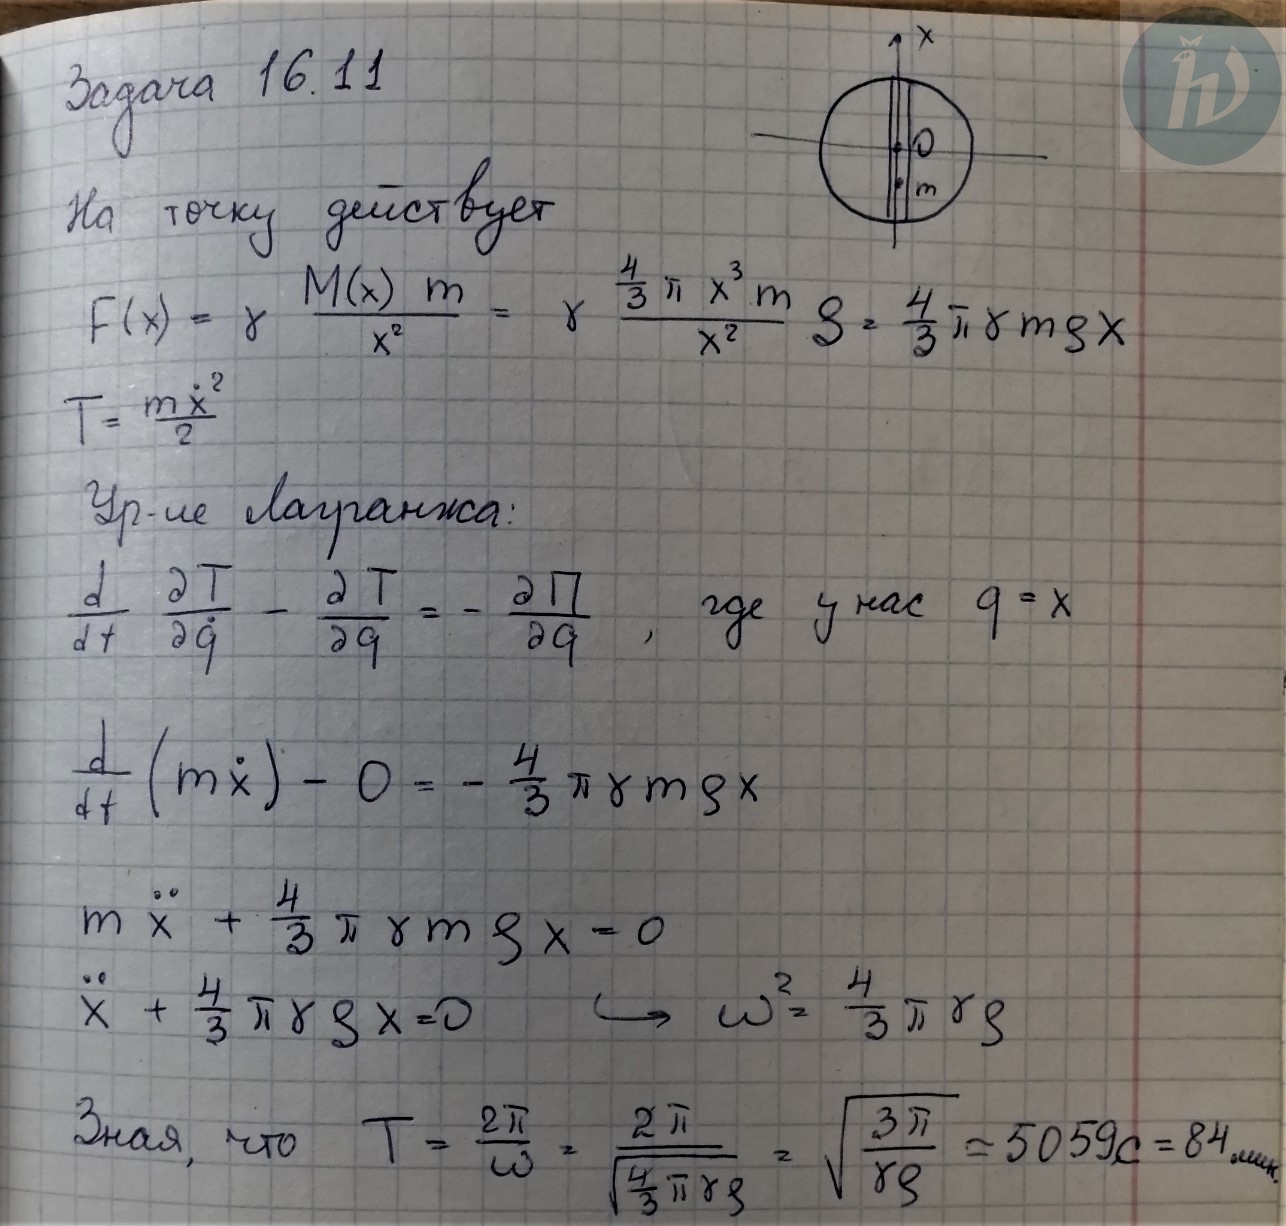 Задача 16.11
x
O
m
На точку действует
F(x) = γ M(x) m / x² = γ 4/3 π x³ m / x² ρ = 4/3 π γ m ρ x
T = mẋ² / 2
Ур-ие Лагранжа:
d/dt ∂T/∂q̇ - ∂T/∂q = - ∂П/∂q , где у нас q = x
d/dt (mẋ) - 0 = - 4/3 π γ m ρ x
mẍ + 4/3 π γ m ρ x = 0
ẍ + 4/3 π γ ρ x = 0 ↪ ω² = 4/3 π γ ρ
Зная, что T = 2π/ω = 2π/√(4/3 π γ ρ) = √(3π/γρ) = 5059с = 84 мин.